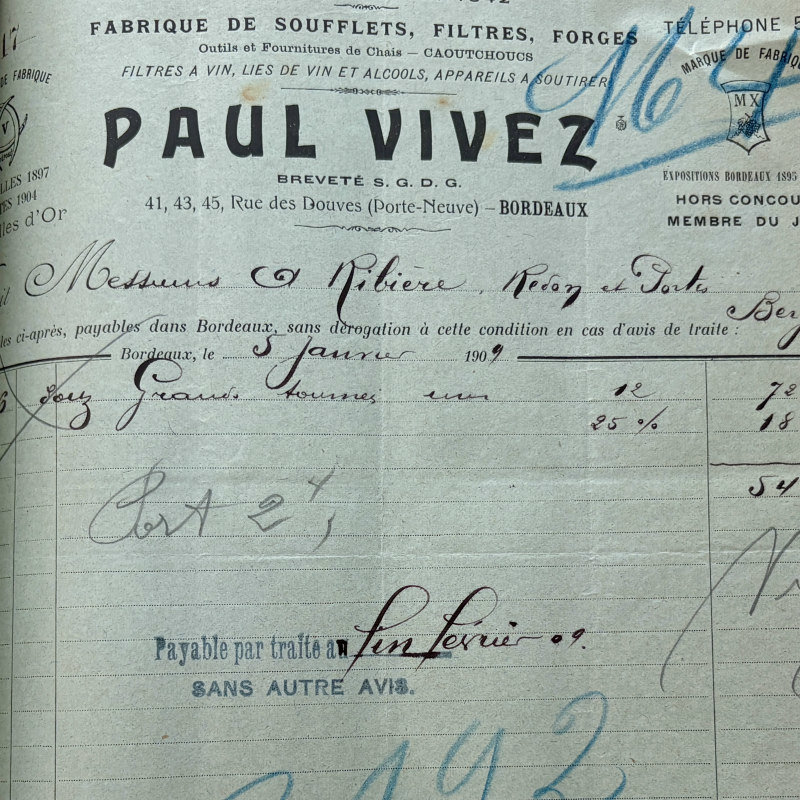 FABRIQUE DE SOUFFLETS, FILTRES, FORGES
TÉLÉPHONE 5
Outils et Fournitures de Chais – CAOUTCHOUCS
FILTRES A VIN, LIES DE VIN ET ALCOOLS, APPAREILS A SOUTIRER
DE FABRIQUE
MARQUE DE FABRIQUE
MX
V
PAUL VIVEZ
BREVETÉ S. G. D. G.
41, 43, 45, Rue des Douves (Porte-Neuve) – BORDEAUX
LLES 1897
TES 1904
lles d'Or
EXPOSITIONS BORDEAUX 1895
HORS CONCOU
MEMBRE DU J
it Messieurs Ribière, Redon et Portes
Ber
les ci-après, payables dans Bordeaux, sans dérogation à cette condition en cas d'avis de traite :
Bordeaux, le 5 Janvier 1909
6 Grands 12 72
25 % 18
54
Port 2 4
Payable par traite au fin février 09.
SANS AUTRE AVIS.
192